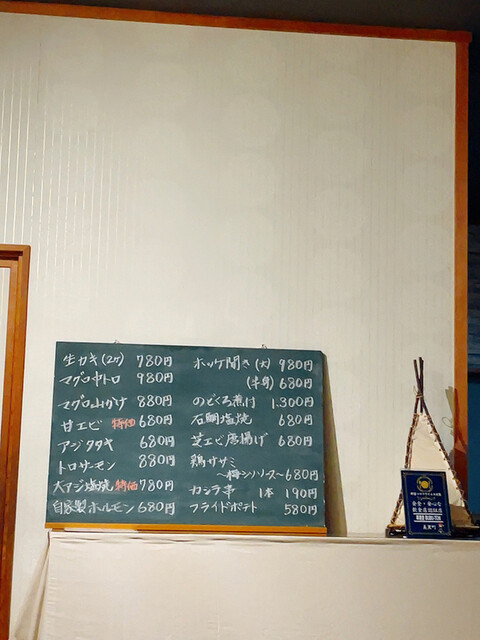 生カキ(2ヶ) 780円
マグロ中トロ 980円
マグロ山かけ 880円
甘エビ 特価 680円
アジタタキ 680円
トロサーモン 880円
大アジ塩焼 特価 780円
自家製ホルモン 680円
ホッケ開き(大) 980円
(半身) 680円
のどぐろ煮付 1,300円
石鯛塩焼 680円
芝エビ唐揚げ 680円
鶏ササミ
〜梅シソソース〜 680円
カシラ串 1本 190円
フライドポテト 580円
安全・安心な
飲食店認証店